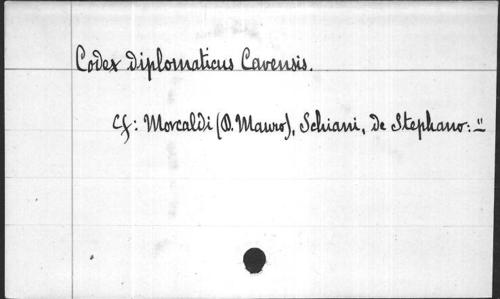 Codex diplomaticus Cavensis.
Cf: Morcaldi (D. Mauro), Schiani, de Stephano: "